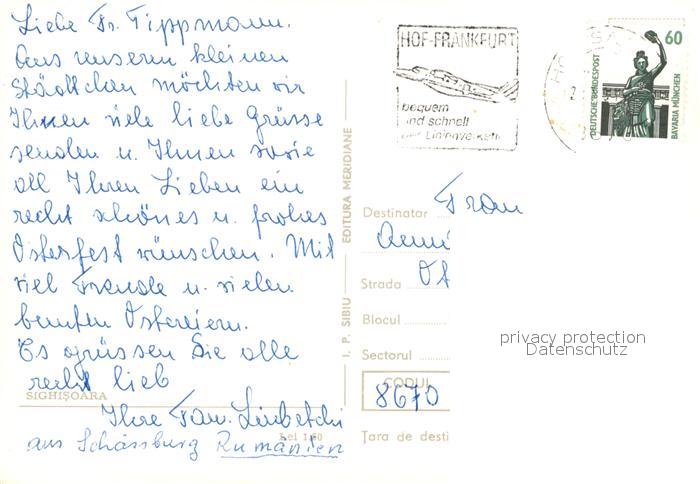 Liebe Fr. Tippmann.
Aus unserem kleinen
Städtchen möchten wir
Ihnen viele liebe Grüsse
senden u. Ihnen sowie
all Ihren Lieben ein
recht schönes u. frohes
Osterfest wünschen. Mit
viel Freude u. vielen
bunten Ostereiern.
Es grüssen Sie alle
recht lieb
SIGHIȘOARA
Ihre Fam.
aus Schässburg Rumänien
Lei 1,60
I. P. SIBIU — EDITURA MERIDIANE
HOF-FRANKFURT
bequem
und schnell
im Linienverkehr
60
DEUTSCHE BUNDESPOST
BAVARIA MÜNCHEN
Destinatar Frau
Strada
Blocul
Sectorul
CODUL
8670
Țara de desti
privacy protection
Datenschutz